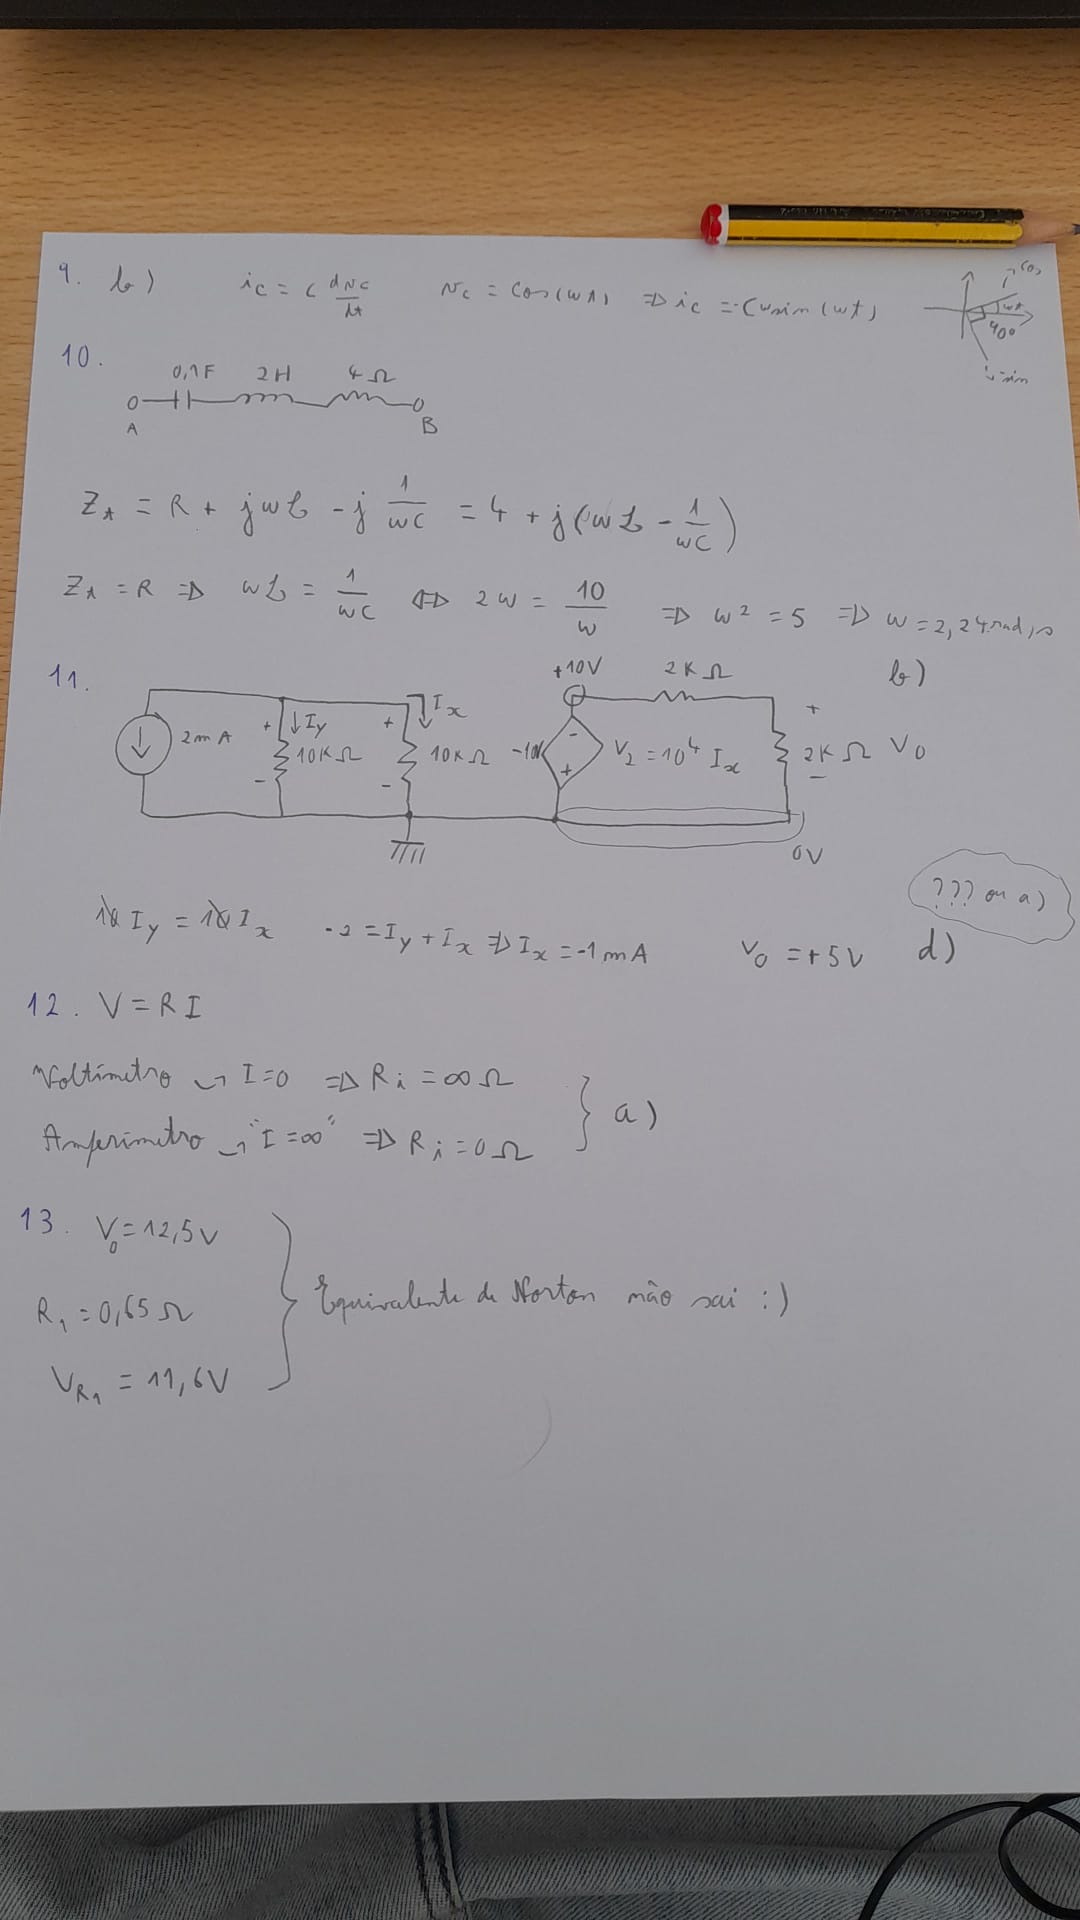 9. b) ic = C dvc/dt vc = cos(wt) => ic = -Cw sin(wt)
cos
wt
90°
-sin
10.
0,1F 2H 4Ω
A B
Zt = R + jwL - j 1/wC = 4 + j(wL - 1/wC)
Zt = R => wL = 1/wC <=> 2w = 10/w => w² = 5 => w = 2,24 rad/s
b)
11.
+10V 2KΩ
2mA + ↓Iy 10KΩ - + Ix 10KΩ - -10V - + V2 = 10⁴ Ix + 2KΩ - Vo
0V
??? ou a)
10 Iy = 10 Ix -2 = Iy + Ix => Ix = -1mA Vo = +5V d)
12. V = R I
Voltímetro → I=0 => Ri = ∞ Ω
Amperímetro → "I = ∞" => Ri = 0Ω } a)
13. Vo = 12,5V
R1 = 0,65Ω } Equivalente de Norton não sai :)
VR1 = 11,6V